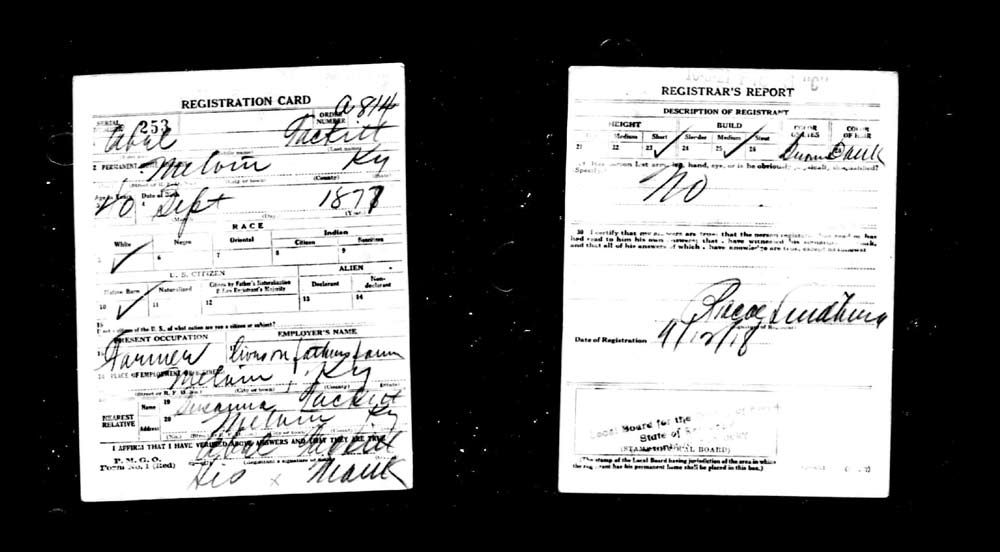 REGISTRATION CARD
SERIAL NUMBER 253
ORDER NUMBER a 814
Abal Tackitt
(Last name)
2 PERMANENT
Melvin Ky
(City or town) (County)
Age in Years Date of Birth
40 4 Sept 1877
(Day) (Year)
RACE
White Negro Oriental Indian
Citizen Noncitizen
✓ 6 7 8 9
U. S. CITIZEN ALIEN
Native Born Naturalized Citizen by Father's Naturalization Before Registrant's Majority Declarant Non-declarant
10 ✓ 11 12 13 14
15
If not a citizen of the U. S., of what nation are you a citizen or subject?
PRESENT OCCUPATION EMPLOYER'S NAME
Farmer lives on fathers farm
PLACE OF EMPLOYMENT
Melvin, Ky
(Street or R. F. D. No.) (City or town) (County)
NEAREST RELATIVE
Name 19 Susanna Tackitt
Address 20 Melvin Ky
I AFFIRM THAT I HAVE VERIFIED ABOVE ANSWERS AND THAT THEY ARE TRUE
P. M. G. O.
Form No. 1 (Red)
Abal Tackitt
His x Mark
REGISTRAR'S REPORT
DESCRIPTION OF REGISTRANT
HEIGHT BUILD COLOR OF EYES COLOR OF HAIR
Medium Short Slender Medium Stout
21 22 23 ✓ 24 25 ✓ 26
Dark
Has person lost arm, leg, hand, eye, or is he obviously physically disqualified?
Specify
No
30 I certify that my answers are true; that the person registered has read or has
had read to him his own answers; that I have witnessed his signature or mark,
and that all of his answers of which I have knowledge are true, except as follows:
Date of Registration 9/12/18
Local Board for the
State of
(STAMP OF LOCAL BOARD)
(The stamp of the Local Board having jurisdiction of the area in which
the registrant has his permanent home shall be placed in this box.)